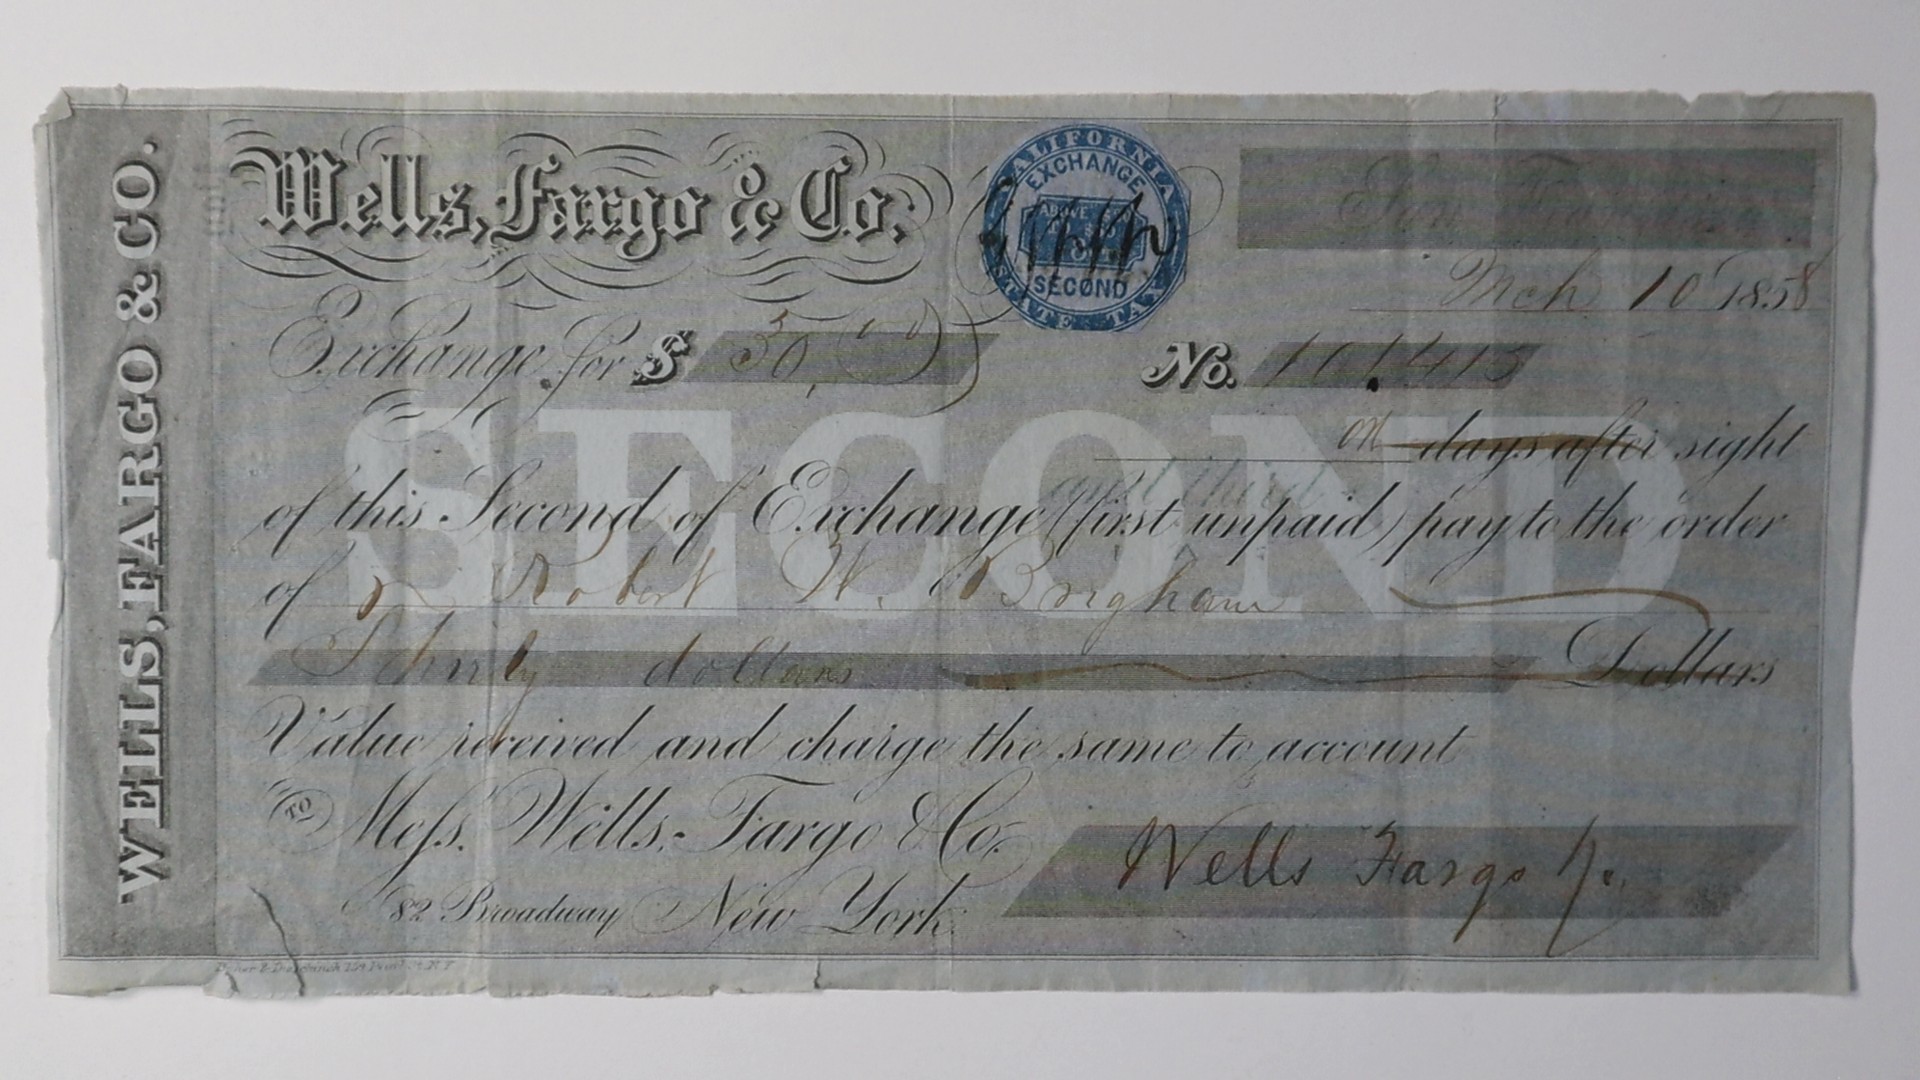 WELLS, FARGO & CO.
Wells, Fargo & Co.
CALIFORNIA
EXCHANGE
ABOVE
SECOND
STATE TAX
San Francisco
Mch 10 1858
Exchange for $ 50,00
No. 101.415
on days after sight
and third
of this Second of Exchange (first unpaid) pay to the order
of Robert W. Brigham
dollars Dollars
Value received and charge the same to account
TO Mess. Wells, Fargo & Co.
82 Broadway New York
Wells Fargo &c.